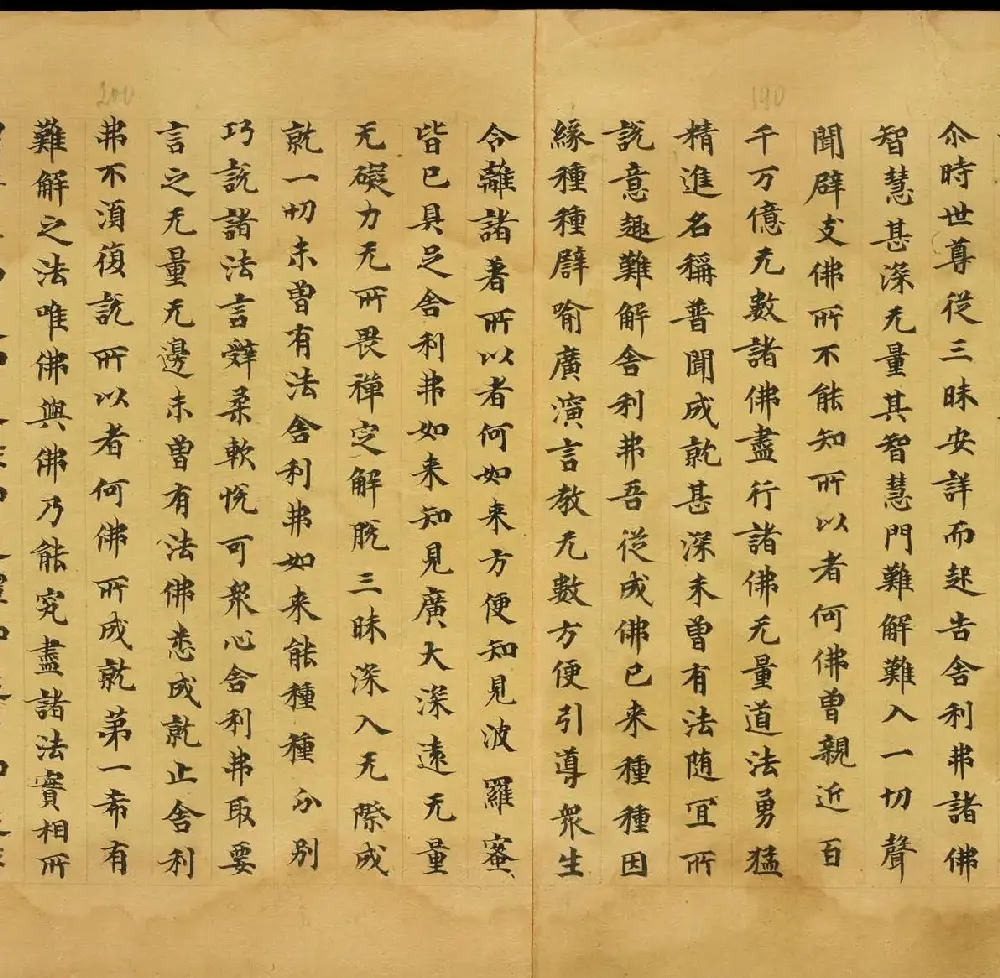 尒時世尊從三昧安詳而起告舍利弗諸佛
智慧甚深无量其智慧門難解難入一切聲
聞辟支佛所不能知所以者何佛曽親近百
千万億无數諸佛盡行諸佛无量道法勇猛
精進名稱普聞成就甚深未曽有法随冝所
說意趣難解舍利弗吾從成佛已来種種因
緣種種辟喻廣演言教无數方便引導衆生
令離諸著所以者何如来方便知見波羅蜜
皆已具足舍利弗如来知見廣大深遠无量
无礙力无所畏禪定解脫三昧深入无際成
就一切未曽有法舍利弗如来能種種分別
巧說諸法言辤柔軟悅可衆心舍利弗取要
言之无量无邊未曽有法佛悉成就止舍利
弗不湏復說所以者何佛所成就第一希有
難解之法唯佛與佛乃能究盡諸法實相所
190
200